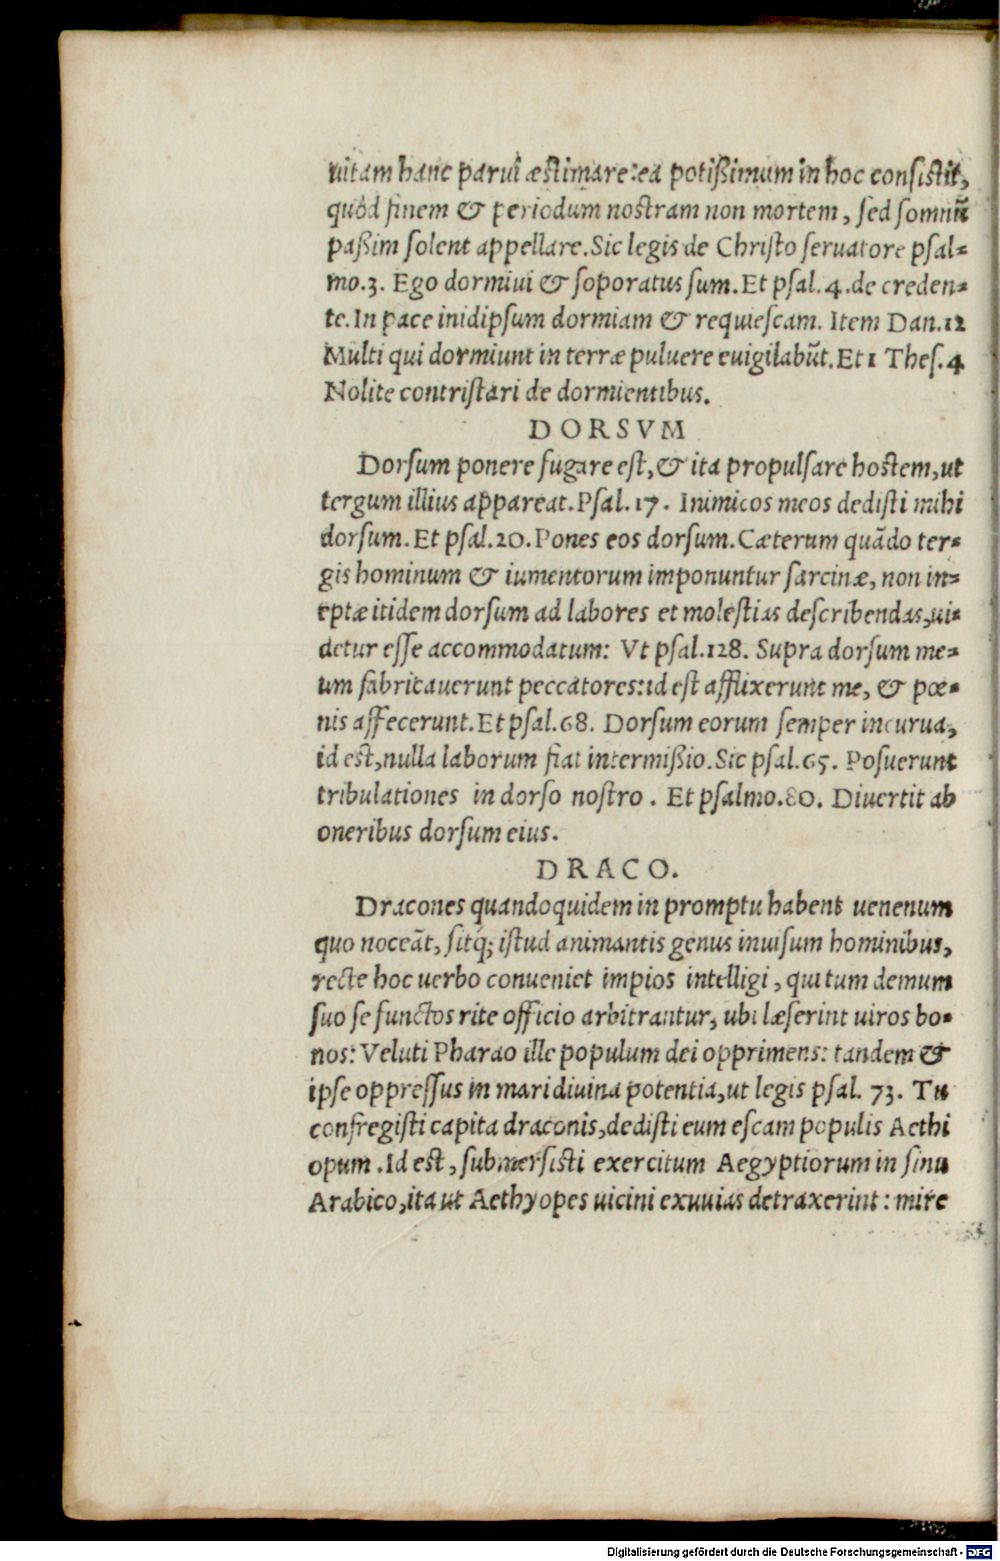 uitam hanc parui æstimare: ea potißimum in hoc consistit,
quòd finem & periodum nostram non mortem, sed somnū
paßim solent appellare. Sic legis de Christo seruatore psal-
mo.3. Ego dormiui & soporatus sum. Et psal.4.de creden-
te. In pace inidipsum dormiam & requiescam. Item Dan.12
Multi qui dormiunt in terræ puluere euigilabūt. Et 1 Thes.4
Nolite contristari de dormientibus.
DORSVM
Dorsum ponere fugare est, & ita propulsare hostem, ut
tergum illius appareat. Psal.17. Inimicos meos dedisti mihi
dorsum. Et psal.20. Pones eos dorsum. Cæterum quādo ter-
gis hominum & iumentorum imponuntur sarcinæ, non in-
eptæ itidem dorsum ad labores et molestias describendas, ui-
detur esse accommodatum: Vt psal.128. Supra dorsum me-
um fabricauerunt peccatores: id est afflixerunt me, & pœ-
nis affecerunt. Et psal.68. Dorsum eorum semper incurua,
id est, nulla laborum fiat intermißio. Sic psal.65. Posuerunt
tribulationes in dorso nostro. Et psalmo.80. Diuertit ab
oneribus dorsum eius.
DRACO.
Dracones quandoquidem in promptu habent uenenum
quo noceāt, sitq́; istud animantis genus inuisum hominibus,
recte hoc uerbo conueniet impios intelligi, qui tum demum
suo se functos rite officio arbitrantur, ubi læserint uiros bo-
nos: Veluti Pharao ille populum dei opprimens: tandem &
ipse oppressus in mari diuina potentia, ut legis psal. 73. Tu
confregisti capita draconis, dedisti eum escam populis Aethi
opum. Id est, submersisti exercitum Aegyptiorum in sinu
Arabico, ita ut Aethyopes uicini exuuias detraxerint: mire
Digitalisierung gefördert durch die Deutsche Forschungsgemeinschaft - DFG